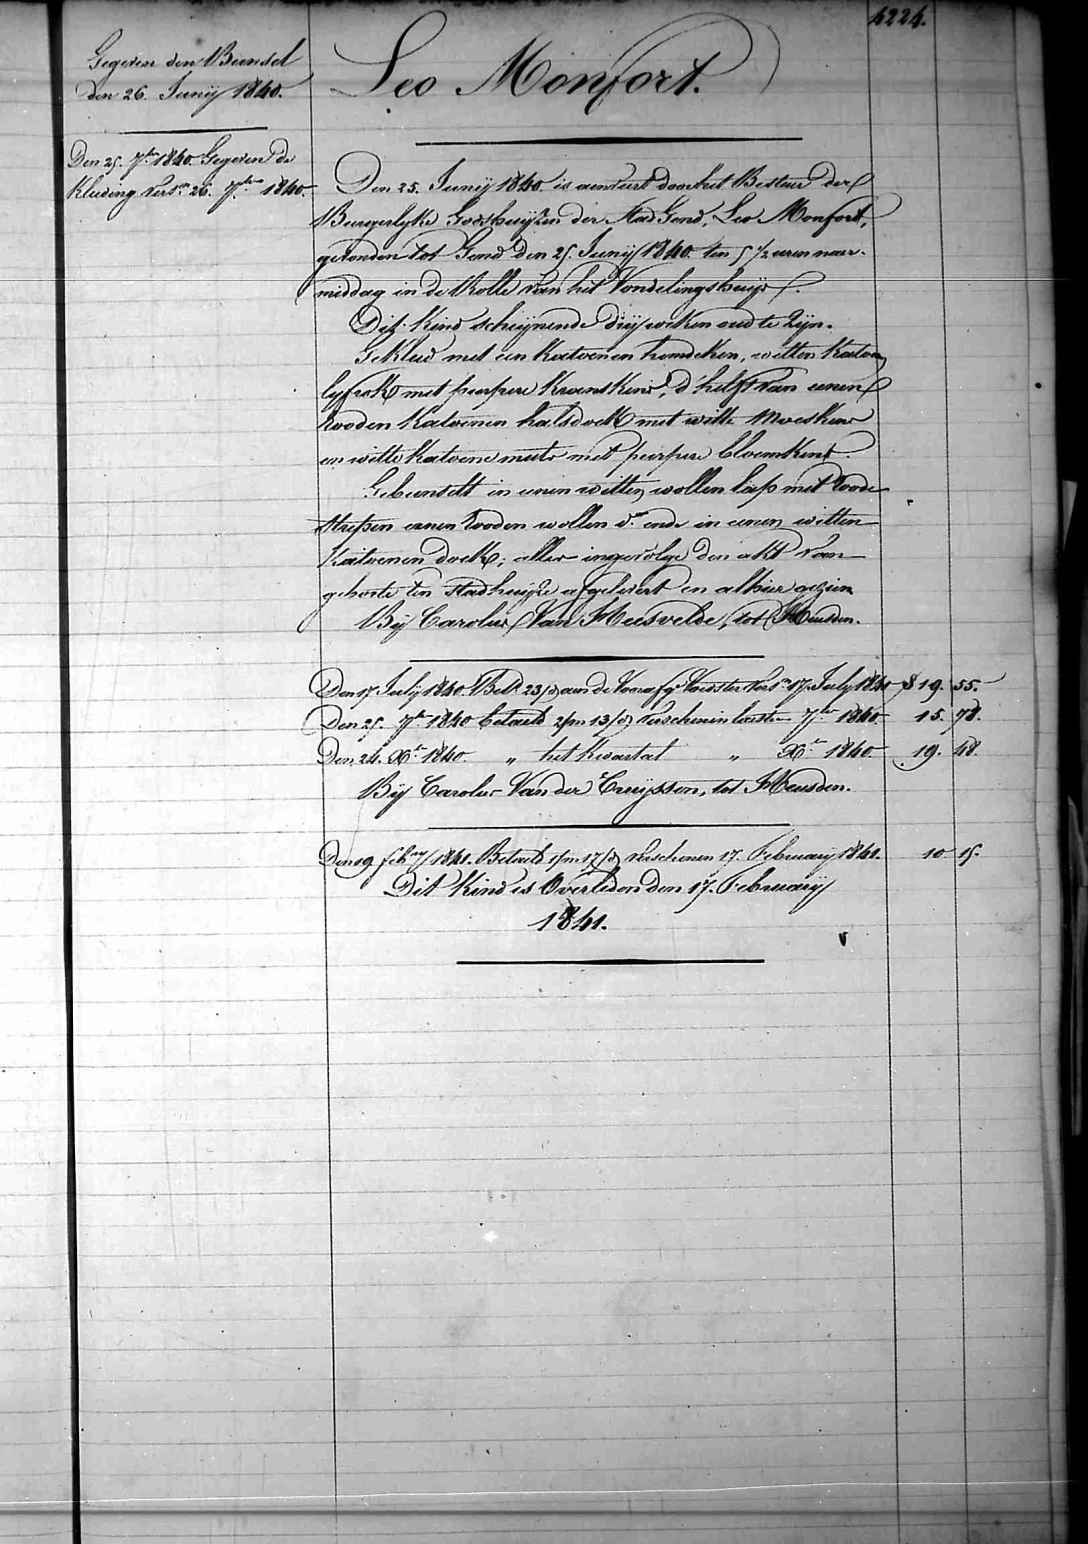 4224.
Gegeven den Bunsel
den 26. Junij 1840.
Den 25. 7ber 1840. Gegeven de
Kleeding Versn 26. 7ber 1840.
Leo Monfort.
Den 25. Junij 1840 is aenveert door het Bestuer der
Burgerlyke Godshuijzen der Stad Gend, Leo Monfort,
gevonden tot Gend den 25. Junij 1840. ten 5 1/2 uren naer-
middag in de Rolle van het Vondelingshuijs.
Dit kind scheijnende drij weken oud te zijn.
Gekleed met een katoenen hemdeken, witten katoen
lyfrok met peerpere kranskens, d'helft van eenen
rooden katoenen halsdoek met witte moeskens
en witte katoene muts met peerpere bloemkens.
Gebunselt in eenen witten wollen lap met roode
strepen eenen rooden wollen do ende in eenen witten
katoenen doek; alles ingevolge den akt van
geborte ten stadhuijze afgelevert en alhier gezien
Bij Carolus Van Heesvelde, tot Heusden.
Den 17. July 1840. Bete 23/d aen de Voorafge Voedster Versn 17. July 1840 8 19. 55.
Den 25. 7ber 1840 betaeld 2/m 13/d Verschenen laesten 7ber 1840 15. 78.
Den 24. Xber 1840. „ het kwartal „ Xber 1840. 19. 48.
Bij Carolus Van der Cruijssen, tot Heusden.
Den 19 febry 1841. Betaeld 1/m 17/d verschenen 17. February 1841. 10 15.
Dit kind is Overleden den 17. Februarij
1841.